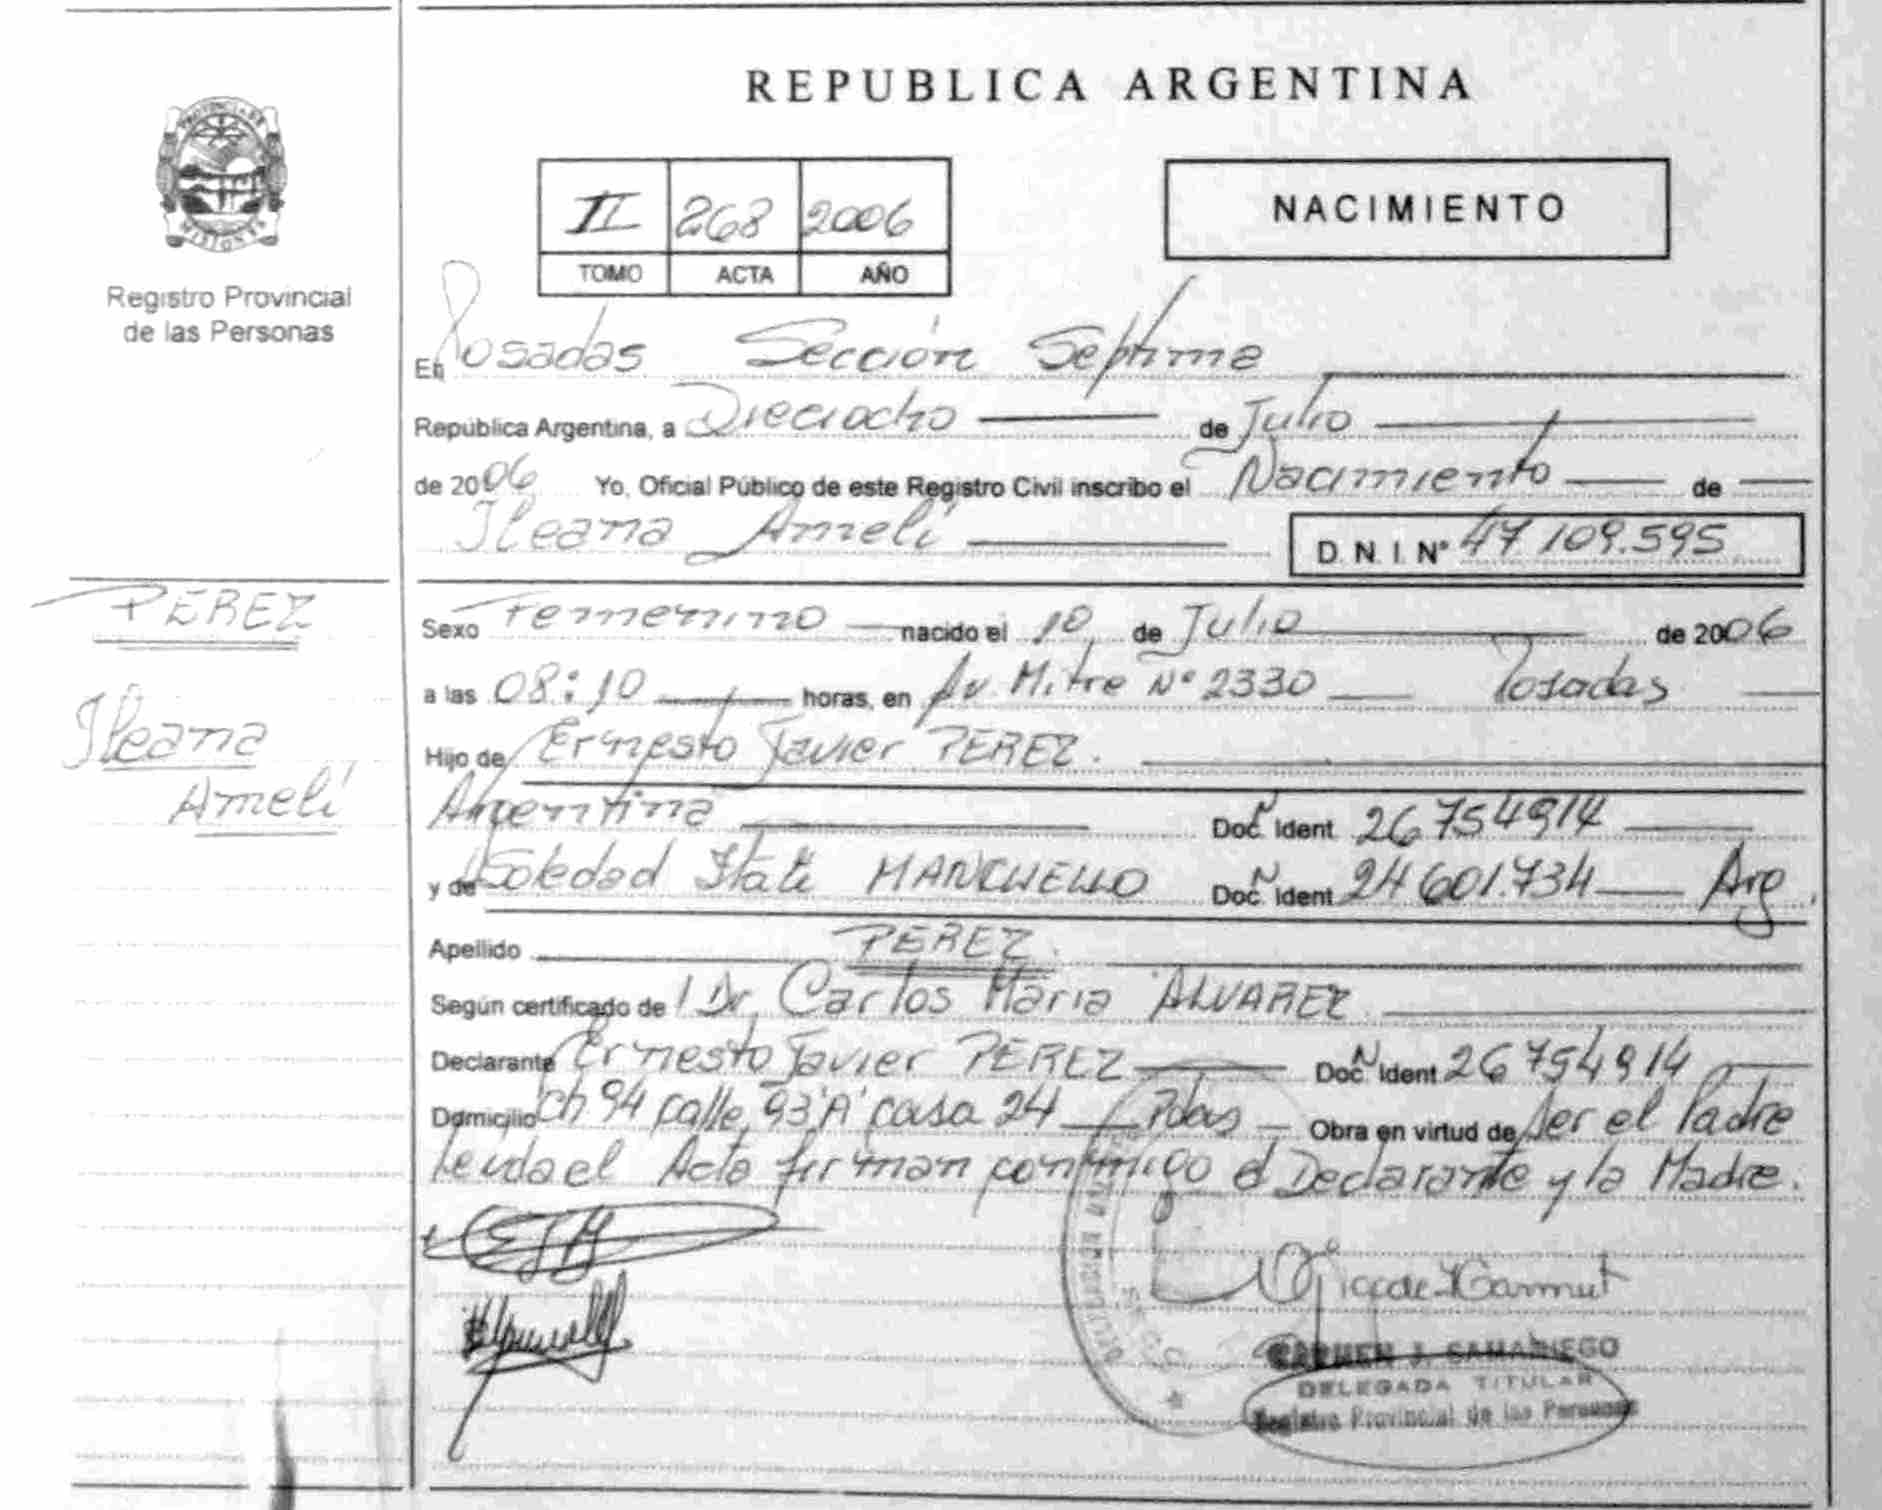 REPUBLICA ARGENTINA
PROVINCIA DE
MISIONES
Registro Provincial
de las Personas
II 268 2006
TOMO ACTA AÑO
NACIMIENTO
En Posadas Sección Septima
República Argentina, a Dieciocho de Julio
de 2006 Yo, Oficial Público de este Registro Civil inscribo el Nacimiento de
Ileana Amelí D. N. I. Nº 47 109.595
PEREZ
Ileana
Amelí
Sexo Femenino nacido el 10 de Julio de 2006
a las 08:10 horas, en Av. Mitre Nº 2330 Posadas
Hijo de Ernesto Javier PEREZ.
Argentina Doc. Ident 26 754914
y de Soledad Itatí Doc. Ident 24 601.734 Arg.
Apellido PEREZ.
Según certificado de Dr. Carlos Maria ALVAREZ
Declarante Ernesto Javier PEREZ Doc. Ident 26 754914
Domicilio Ch 94 calle 93'A' casa 24 Pdas Obra en virtud de Ser el Padre
leida el Acta firman conmigo el Declarante y la Madre.
CARMEN J. SAMANIEGO
DELEGADA TITULAR
Registro Provincial de las Personas